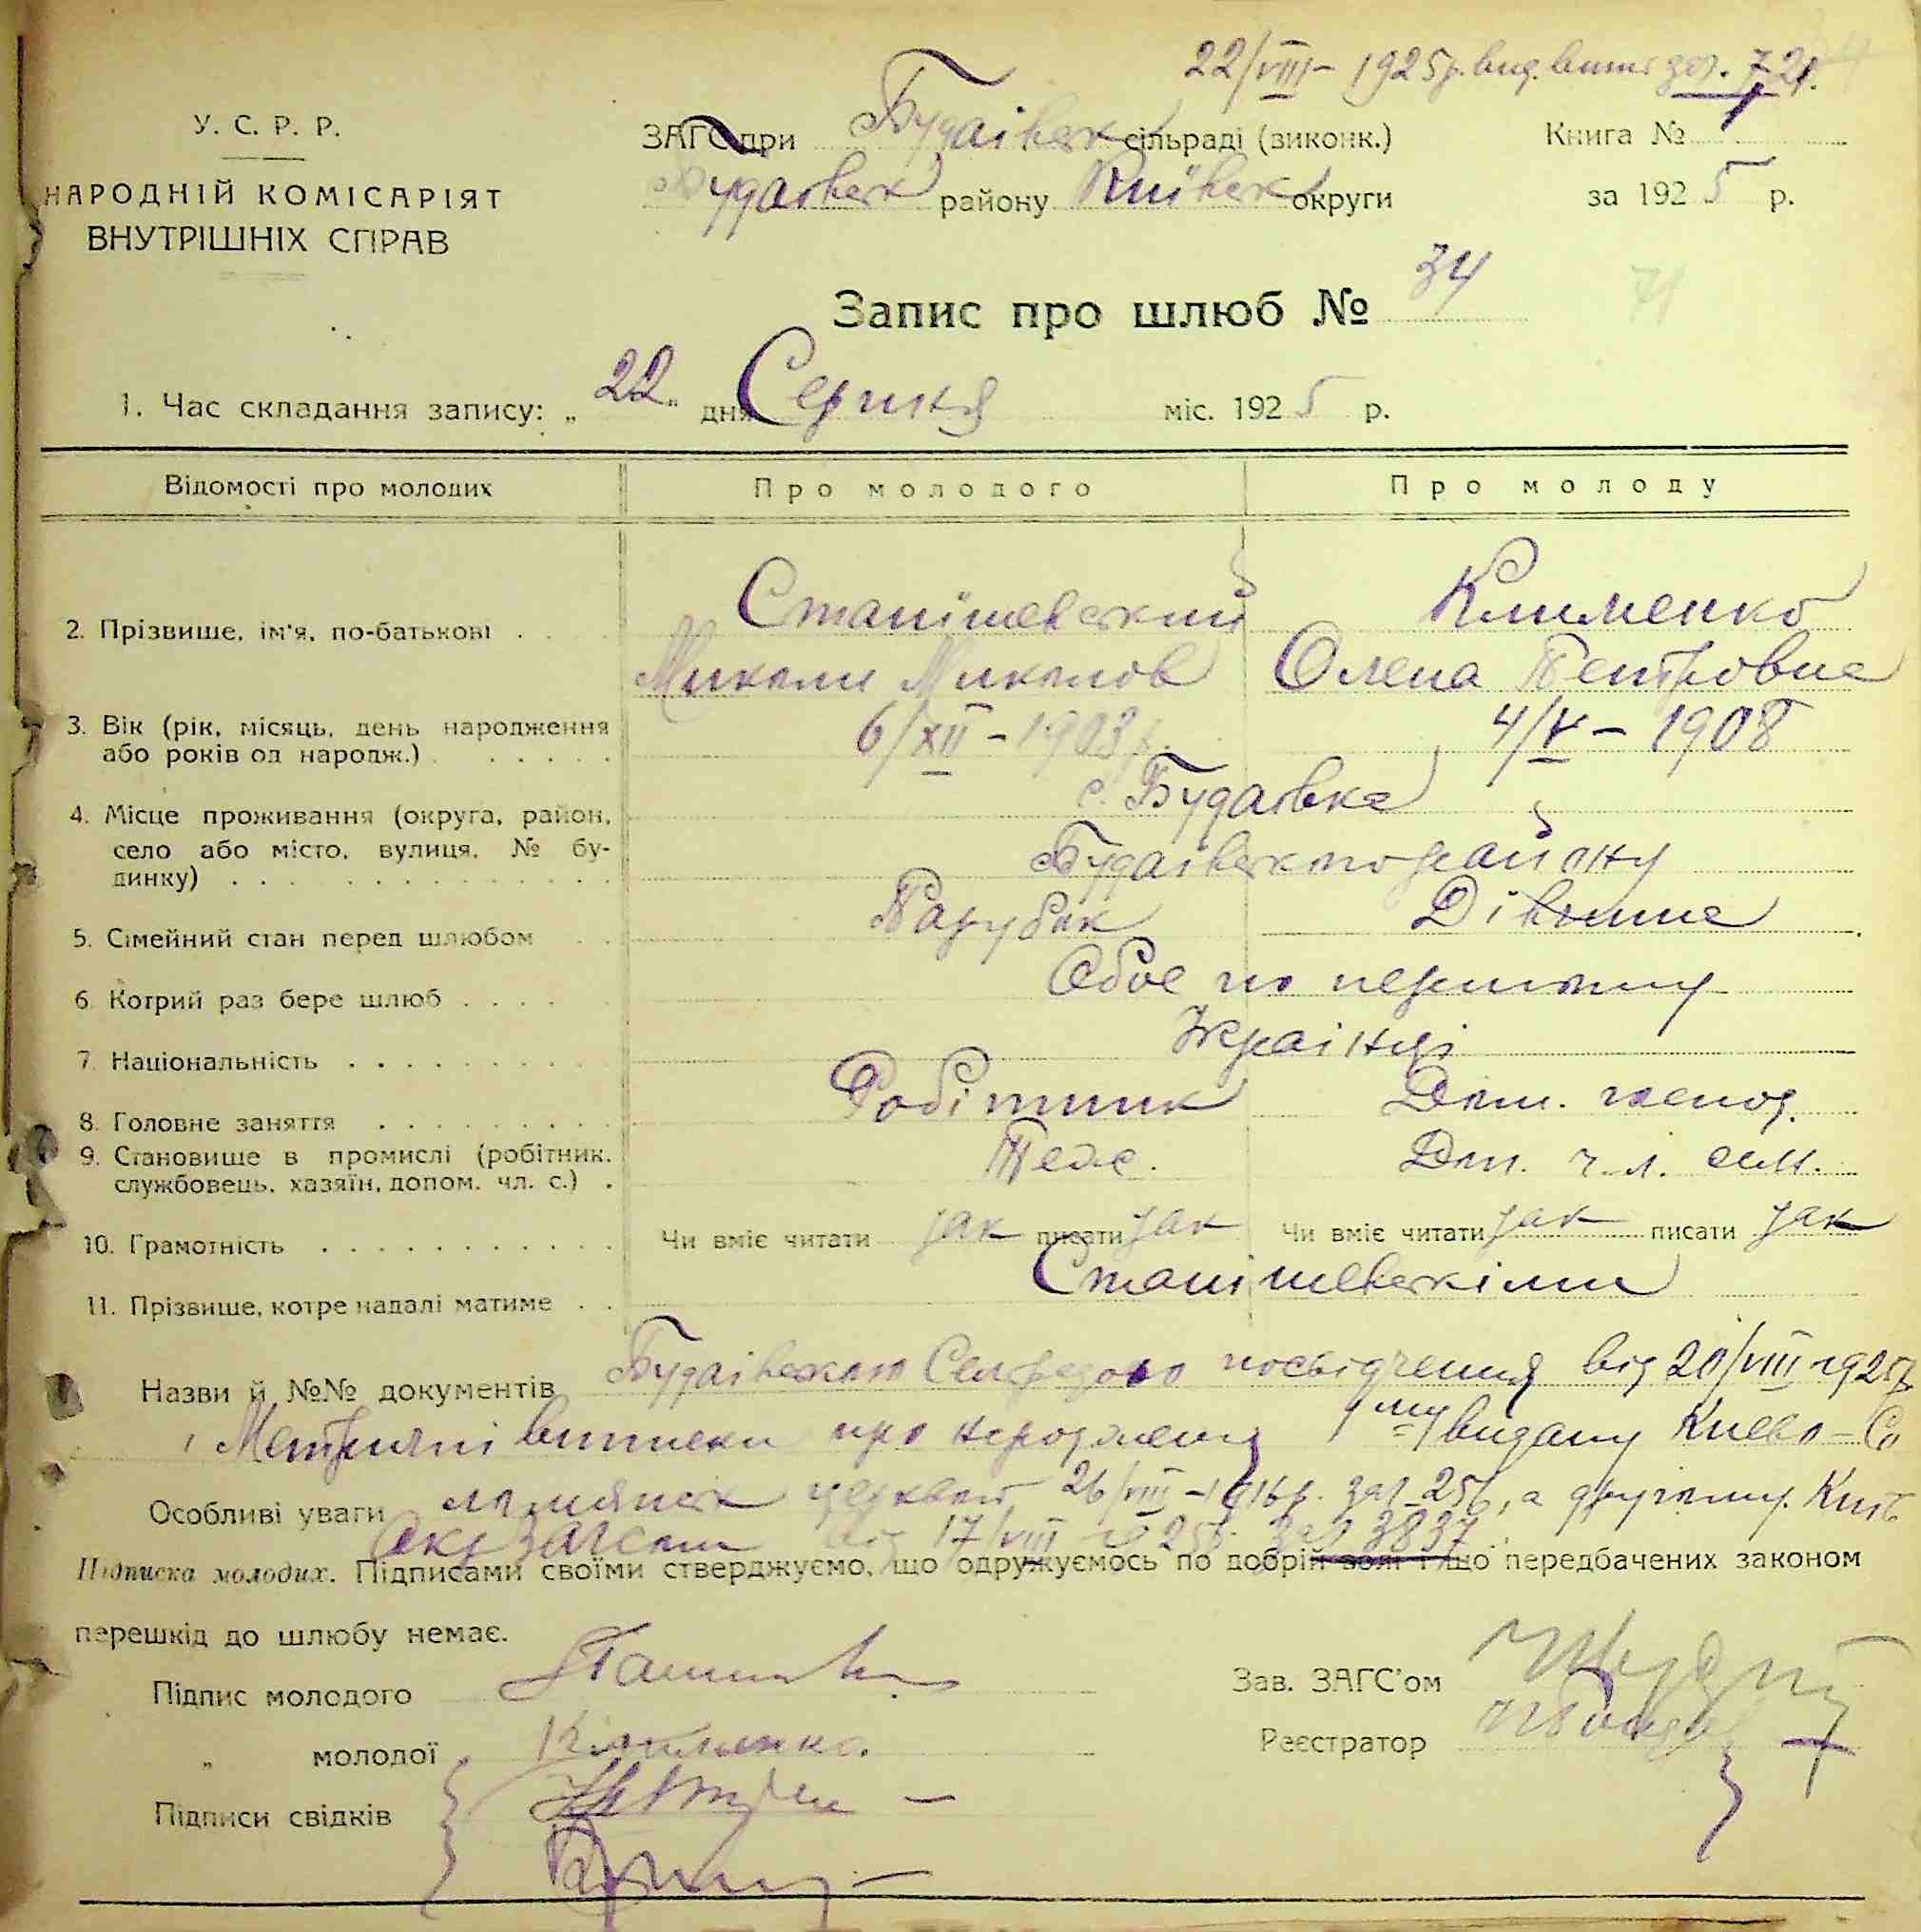 22/VIII – 1925р. вид. витяг за №. 721.
У. С. Р. Р.
ЗАГС при Будаівськ сільраді (виконк.) Книга №
НАРОДНІЙ КОМІСАРІЯТ
Будаівськ району Київськ округи за 1925 р.
ВНУТРІШНІХ СПРАВ
Запис про шлюб № 34
71
1. Час складання запису: „22" дня Серпня міс. 1925 р.
Відомості про молодих Про молодого Про молоду
Станішевський Клименко
2. Прізвище, ім'я, по-батькові
Микола Миколов Олена Петровна
3. Вік (рік, місяць, день народження 6/XII – 1903р. 4/V – 1908
або років од народж.)
с. Будаівка
4. Місце проживання (округа, район,
село або місто, вулиця, № бу-
Будаівського району
динку)
Парубок Дівчина
5. Сімейний стан перед шлюбом
Обое по першому
6. Котрий раз бере шлюб
Украінці
7. Національність
Робітник Дом. господ.
8. Головне заняття
9. Становище в промислі (робітник, Теж. Доп. ч. л. сим.
службовець, хазяїн, допом. чл. с.)
10. Грамотність Чи вміє читати так писати так Чи вміє читати так писати так
Станішевскіми
11. Прізвище, котре надалі матиме
Назви й №№ документів Будаівською Сельрадою посвідчення від 20/VIII 1925р.
і Метричні виписки про народження 1му видану Києво-Со
Особливі уваги церквой, 26/VIII – 1916р. за № 256, а другому. Київ
від 17/VIII 1925р. за № 3837.
Підписка молодих. Підписами своїми стверджуємо, що одружуємось по добрій волі і що передбачених законом
перешкід до шлюбу немає.
Підпис молодого Зав. ЗАГС'ом
„ молодої Клименко. Реєстратор
Підписи свідків